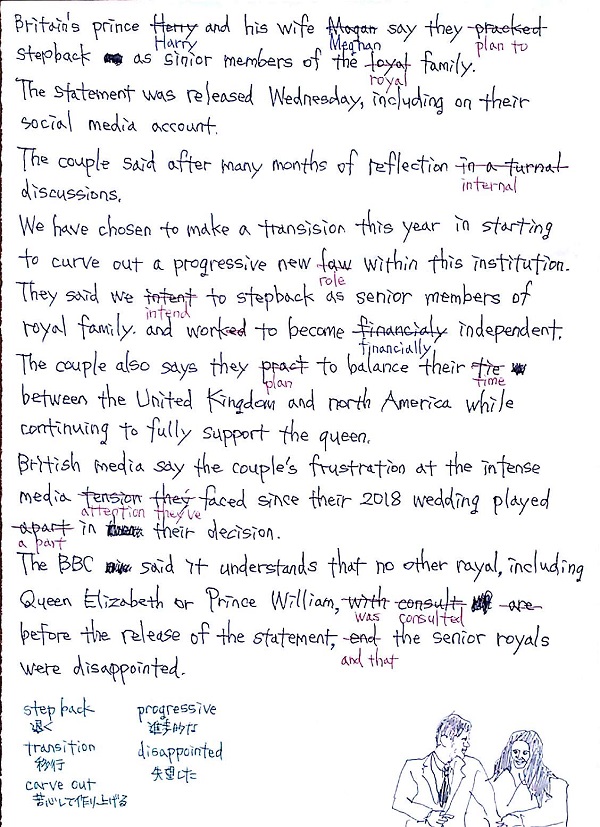 Britain's prince Herry and his wife Magan say they practed
Harry Meghan plan to
stepback as sinior members of the loyal family.
royal
The statement was released Wednesday, including on their
social media account.
The couple said after many months of reflection in a turnal
internal
discussions.
We have chosen to make a transision this year in starting
to curve out a progressive new law within this institution.
role
They said we intent to stepback as senior members of
intend
royal family. and worked to become financialy independent.
financially
The couple also says they pract to balance their tie
plan time
between the United Kingdom and north America while
continuing to fully support the queen.
British media say the couple's frustration at the intense
media tension they faced since their 2018 wedding played
attention they've
apart in their decision.
a part
The BBC said it understands that no other rayal, including
Queen Elizabeth or Prince William, with consult are
was consulted
before the release of the statement, end the senior royals
and that
were disappointed.
step back progressive
退く 進歩的な
transition disappointed
移行 失望した
carve out
苦心して作り上げる